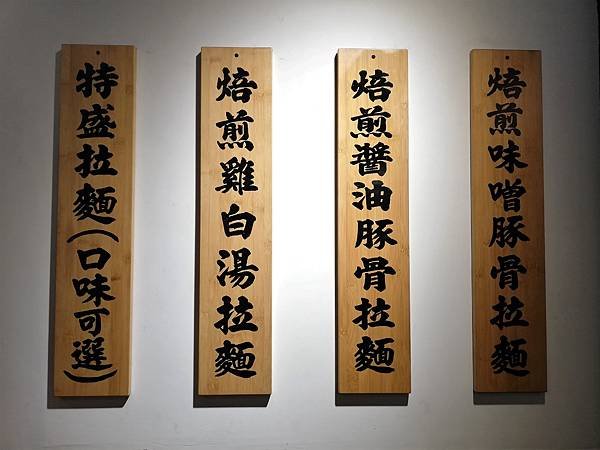 焙煎味噌豚骨拉麵
焙煎醬油豚骨拉麵
焙煎雞白湯拉麵
特盛拉麵(口味可選)